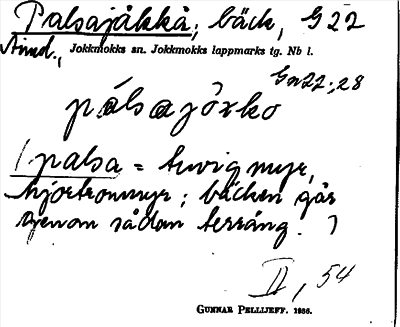 Palsajåkkå; bäck, G22
Aind., Jokkmokks sn. Jokkmokks lappmarks tg. Nb l.
Gn22; 28
pálsajåxko
[palsa = tuvig myr,
hjortronmyr; bäcken går
genom sådan terräng.]
II, 54
GUNNAR PELLIJEFF. 1956.